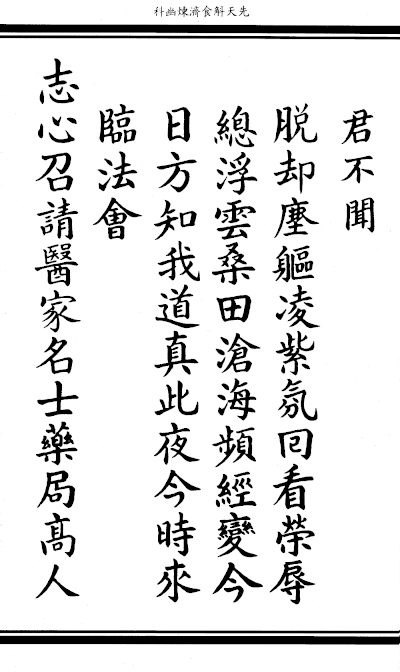 先天斛食濟煉幽科
君不聞
脱却塵軀凌紫氛囘看榮辱
總浮雲桑田滄海頻經變今
日方知我道真此夜今時來
臨法會
志心召請醫家名士藥局髙人